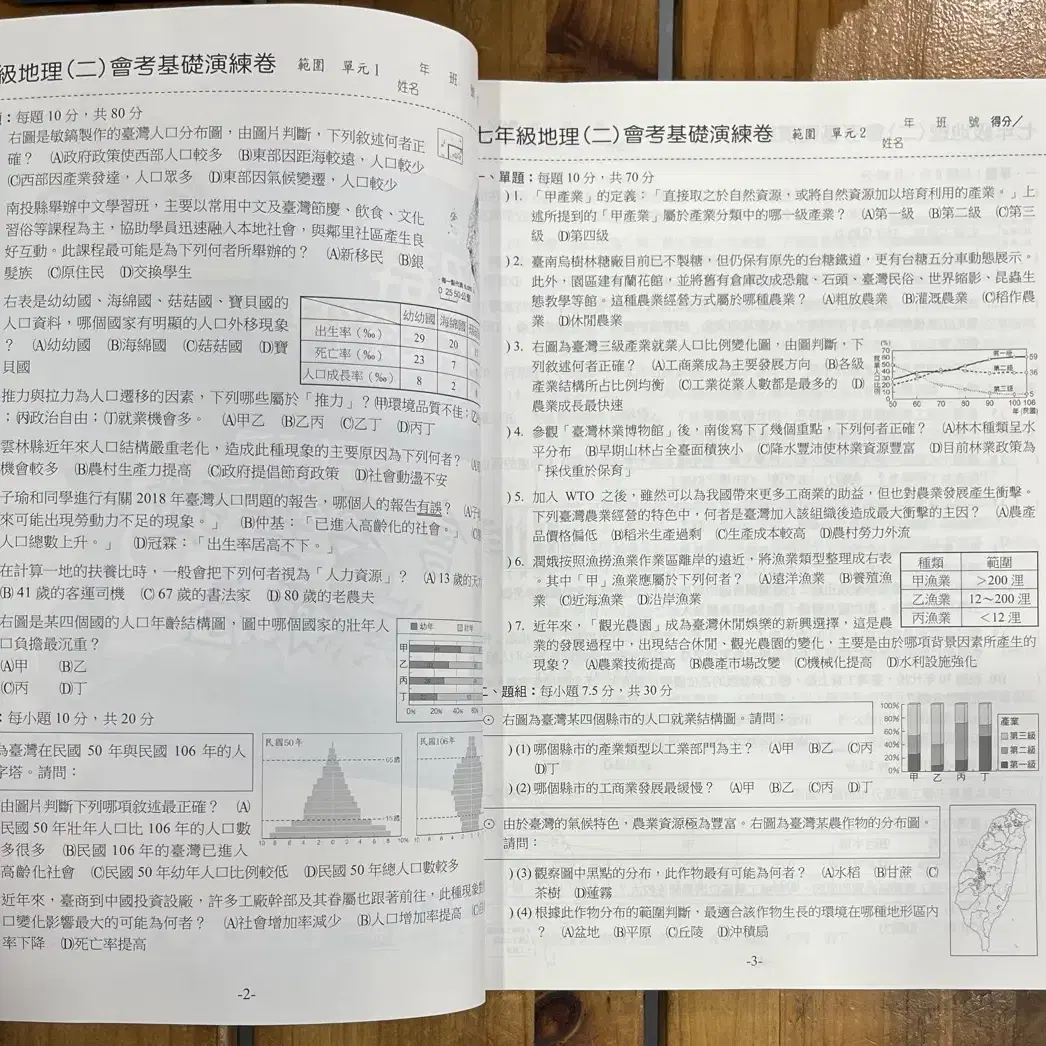 級地理(二)會考基礎演練卷 範圍 單元1 年 班
姓名
:每題10分,共80分
右圖是敏鎬製作的臺灣人口分布圖,由圖片判斷,下列敘述何者正
確? (A)政府政策使西部人口較多 (B)東部因距海較遠,人口較少
(C)西部因產業發達,人口眾多 (D)東部因氣候變遷,人口較少
南投縣舉辦中文學習班,主要以常用中文及臺灣節慶、飲食、文化
習俗等課程為主,協助學員迅速融入本地社會,與鄰里社區產生良
好互動。此課程最可能是為下列何者所舉辦的? (A)新移民 (B)銀
髮族 (C)原住民 (D)交換學生
0 25 50公里
右表是幼幼國、海綿國、菇菇國、寶貝國的
人口資料,哪個國家有明顯的人口外移現象
? (A)幼幼國 (B)海綿國 (C)菇菇國 (D)寶
貝國
幼幼國 海綿國
出生率(‰) 29 20
死亡率(‰) 23 7
人口成長率(‰) 8 2
推力與拉力為人口遷移的因素,下列哪些屬於「推力」?(甲)環境品質不佳;
;(丙)政治自由;(丁)就業機會多。 (A)甲乙 (B)乙丙 (C)乙丁 (D)丙丁
雲林縣近年來人口結構嚴重老化,造成此種現象的主要原因為下列何者?
機會較多 (B)農村生產力提高 (C)政府提倡節育政策 (D)社會動盪不安
子瑜和同學進行有關2018年臺灣人口問題的報告,哪個人的報告有誤?
來可能出現勞動力不足的現象。」 (B)仲基:「已進入高齡化的社會。」
人口總數上升。」 (D)冠霖:「出生率居高不下。」
在計算一地的扶養比時,一般會把下列何者視為「人力資源」? (A)13歲的
(B)41歲的客運司機 (C)67歲的書法家 (D)80歲的老農夫
右圖是某四個國的人口年齡結構圖,圖中哪個國家的壯年人
口負擔最沉重?
(A)甲 (B)乙
(C)丙 (D)丁
幼年
甲
乙
丙
丁
0% 20% 40% 60%
:每小題10分,共20分
為臺灣在民國50年與民國106年的人
字塔。請問:
民國50年
民國106年
65歲
15歲
10 8 6 4 2 0 2 4 6 8 10%
由圖片判斷下列哪項敘述最正確? (A)
民國50年壯年人口比106年的人口數
多很多 (B)民國106年的臺灣已進入
高齡化社會 (C)民國50年幼年人口比例較低 (D)民國50年總人口數較多
近年來,臺商到中國投資設廠,許多工廠幹部及其眷屬也跟著前往,此種現象
口變化影響最大的可能為何者? (A)社會增加率減少 (B)人口增加率提高
率下降 (D)死亡率提高
-2-
七年級地理(二)會考基礎演練卷 範圍 單元2 年 班 號 得分/
姓名
一、單題:每題10分,共70分
)1. 「甲產業」的定義:「直接取之於自然資源,或將自然資源加以培育利用的產業。」上
述所提到的「甲產業」屬於產業分類中的哪一級產業? (A)第一級 (B)第二級 (C)第三
級 (D)第四級
)2. 臺南烏樹林糖廠目前已不製糖,但仍保有原先的台糖鐵道,更有台糖五分車動態展示。
此外,園區建有蘭花館,並將舊有倉庫改成恐龍、石頭、臺灣民俗、世界縮影、昆蟲生
態教學等館。這種農業經營方式屬於哪種農業? (A)粗放農業 (B)灌溉農業 (C)稻作農
業 (D)休閒農業
)3. 右圖為臺灣三級產業就業人口比例變化圖,由圖判斷,下
列敘述何者正確? (A)工商業成為主要發展方向 (B)各級
產業結構所占比例均衡 (C)工業從業人數都是最多的 (D)
農業成長最快速
(%)
就業人口比例
70
60
50
40
30
20
10
0
50 60 70 80 90 100 106
年(民國)
59
36
5
)4. 參觀「臺灣林業博物館」後,南俊寫下了幾個重點,下列何者正確? (A)林木種類呈水
平分布 (B)早期山林占全臺面積狹小 (C)降水豐沛使林業資源豐富 (D)目前林業政策為
「採伐重於保育」
)5. 加入 WTO 之後,雖然可以為我國帶來更多工商業的助益,但也對農業發展產生衝擊。
下列臺灣農業經營的特色中,何者是臺灣加入該組織後造成最大衝擊的主因? (A)農產
品價格偏低 (B)稻米生產過剩 (C)生產成本較高 (D)農村勞力外流
)6. 潤娥按照漁撈漁業作業區離岸的遠近,將漁業類型整理成右表
。其中「甲」漁業應屬於下列何者? (A)遠洋漁業 (B)養殖漁
業 (C)近海漁業 (D)沿岸漁業
種類 範圍
甲漁業 >200浬
乙漁業 12~200浬
丙漁業 <12浬
)7. 近年來,「觀光農園」成為臺灣休閒娛樂的新興選擇,這是農
業的發展過程中,出現結合休閒、觀光農園的變化,主要是由於哪項背景因素所產生的
現象? (A)農業技術提高 (B)農產市場改變 (C)機械化提高 (D)水利設施強化
二、題組:每小題7.5分,共30分
⊙ 右圖為臺灣某四個縣市的人口就業結構圖。請問:
)(1)哪個縣市的產業類型以工業部門為主? (A)甲 (B)乙 (C)丙
(D)丁
)(2)哪個縣市的工商業發展最緩慢? (A)甲 (B)乙 (C)丙 (D)丁
100%
80%
60%
40%
20%
0%
甲 乙 丙 丁
產業
第三級
第二級
第一級
⊙ 由於臺灣的氣候特色,農業資源極為豐富。右圖為臺灣某農作物的分布圖。
請問:
)(3)觀察圖中黑點的分布,此作物最有可能為何者? (A)水稻 (B)甘蔗 (C)
茶樹 (D)蓮霧
)(4)根據此作物分布的範圍判斷,最適合該作物生長的環境在哪種地形區內
? (A)盆地 (B)平原 (C)丘陵 (D)沖積扇
-3-